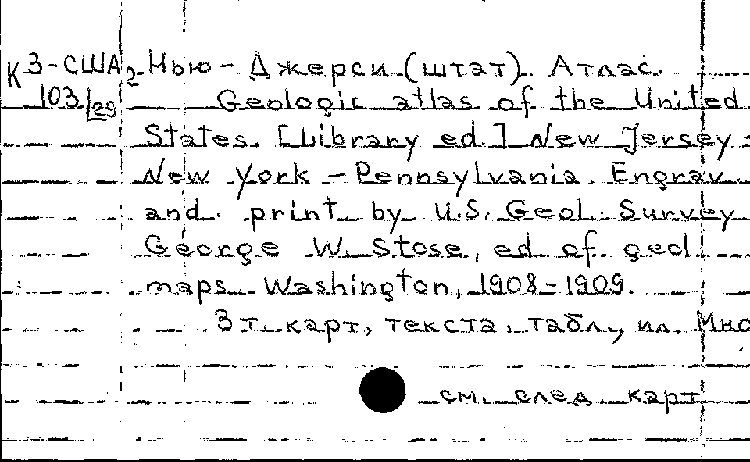 К 3-США 2 Нью-Джерси (штат). Атлас.
103/29 Geologic atlas of the United
States. [Library ed.] New Jersey -
New York - Pennsylvania. Engrav.
and print by U.S. Geol. Survey
George W. Stose, ed of geol
maps. Washington, 1908-1909.
3 т. карт, текста, табл., ил.
см. след карт